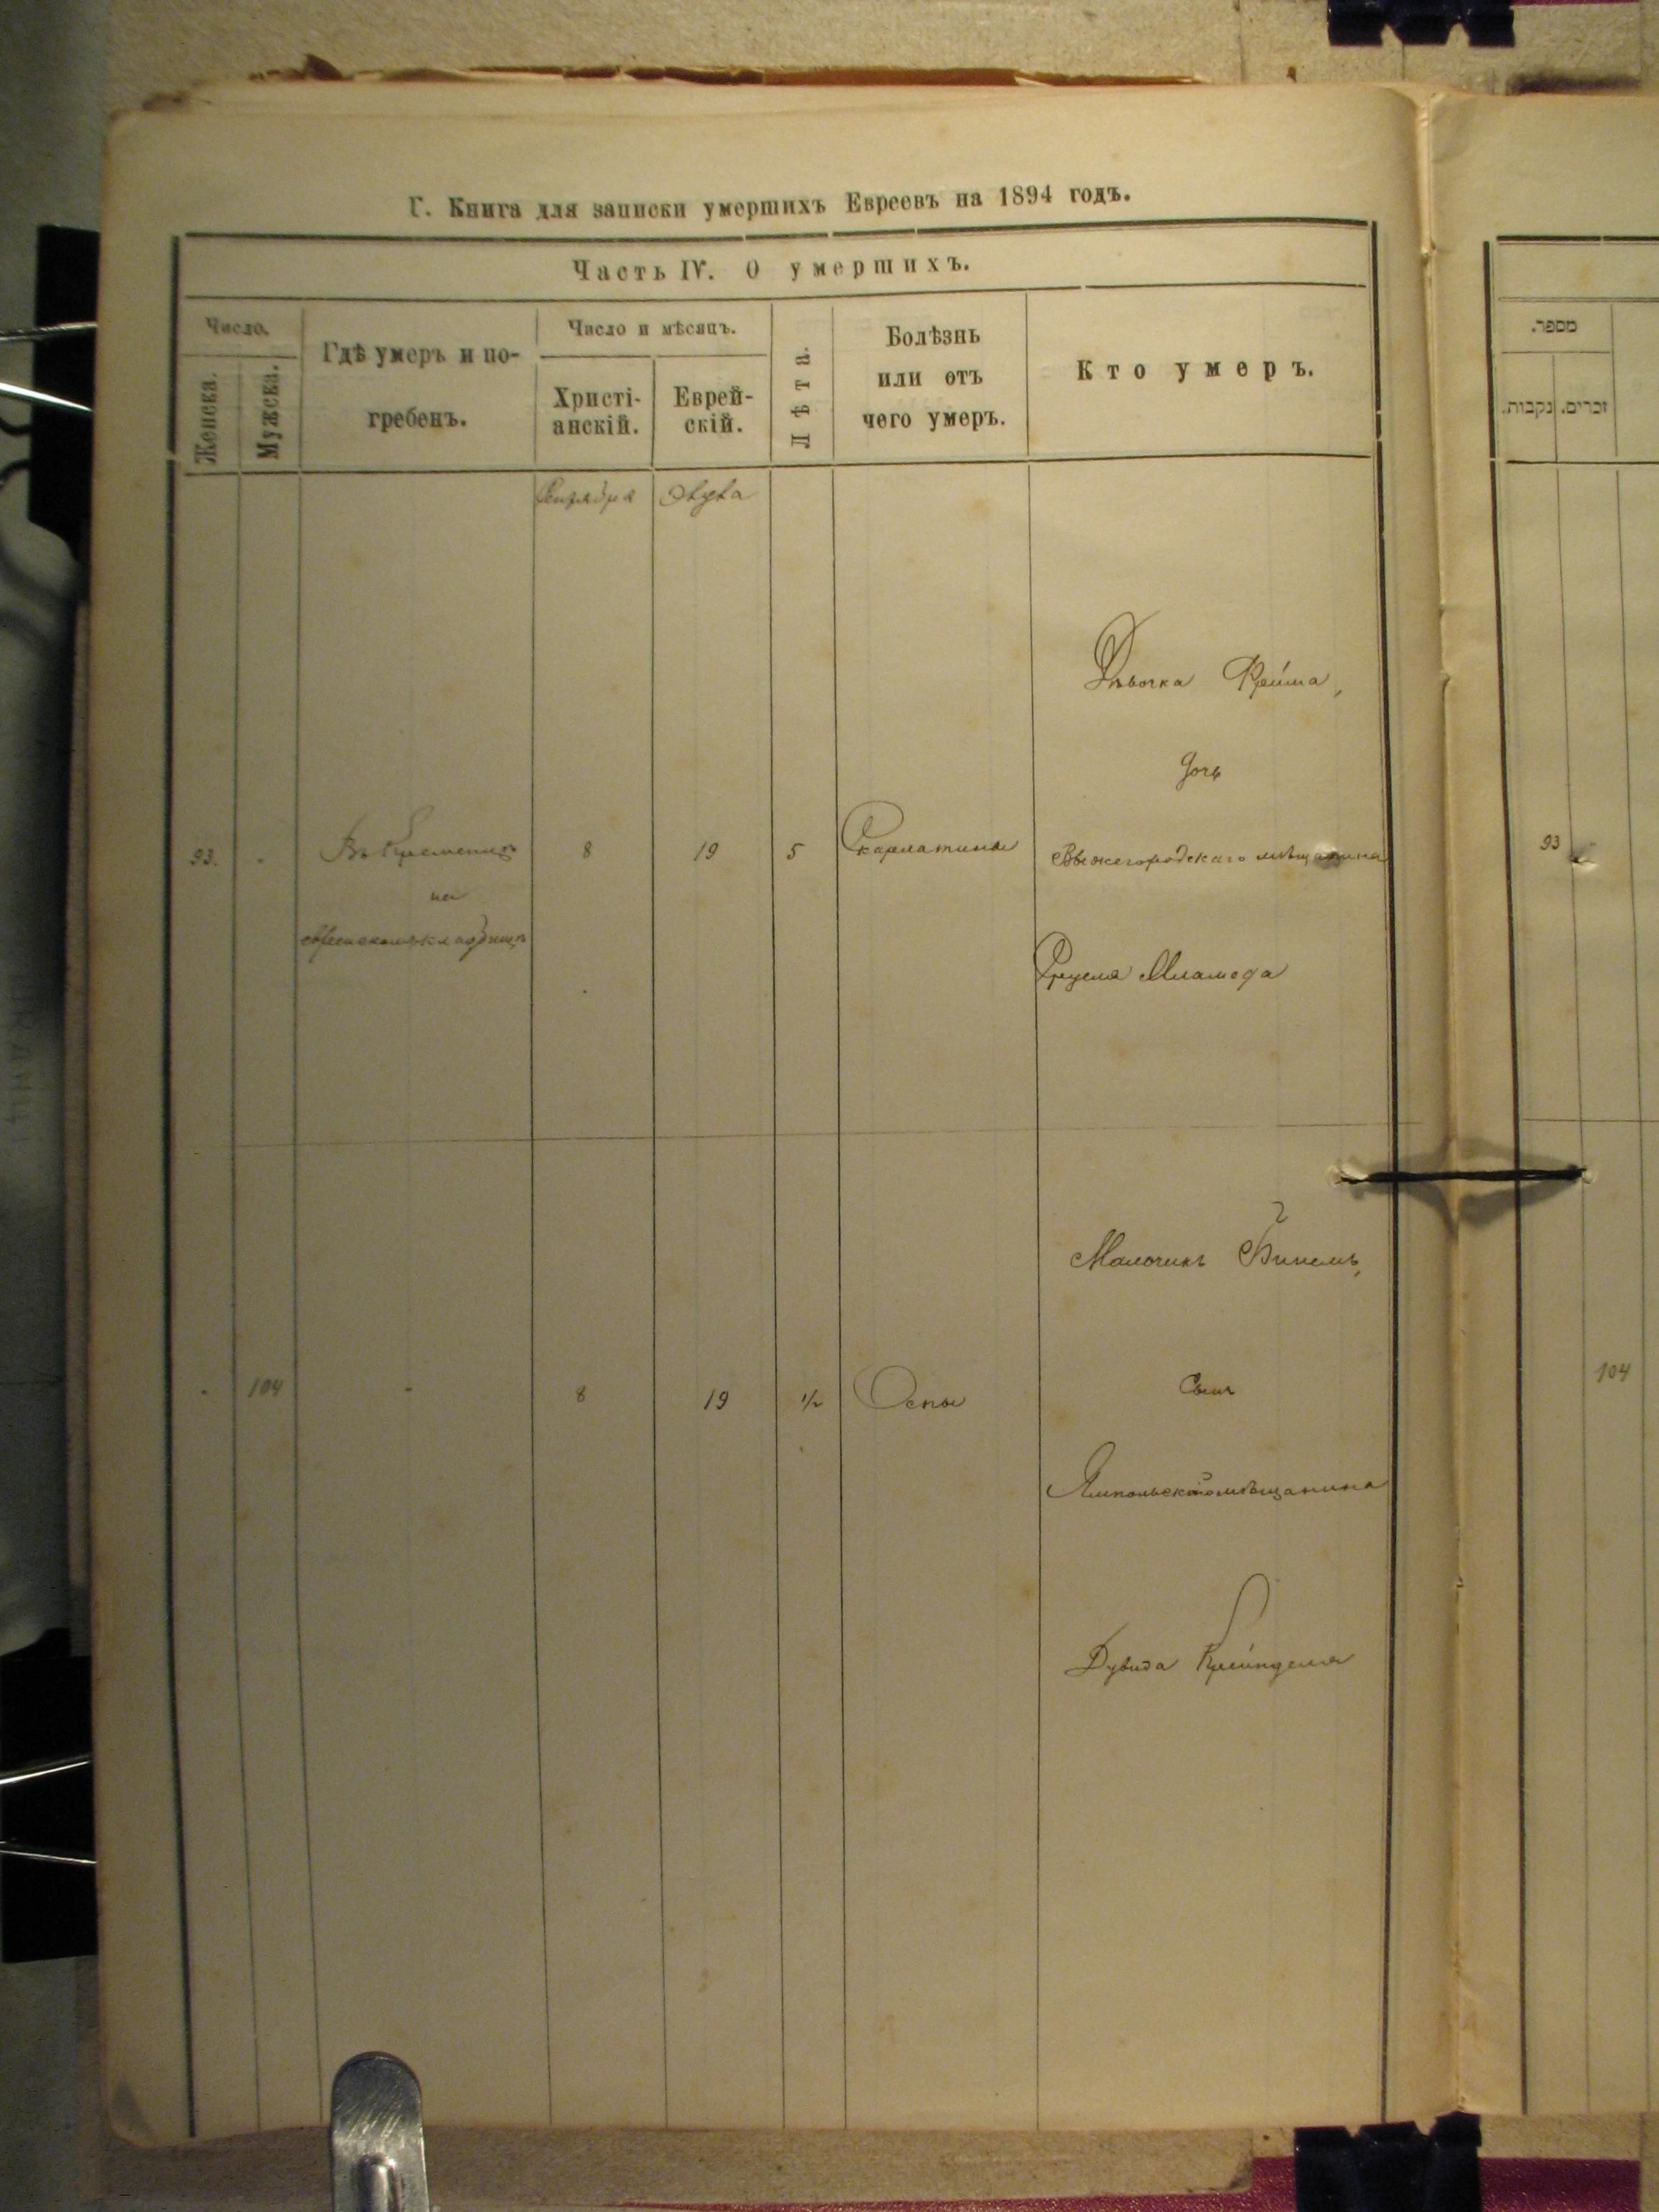 Г. Книга для записки умершихъ Евреевъ на 1894 годъ.
Часть IV. О умершихъ.
Число.
Женска.
Мужска.
Гдѣ умеръ и по-
гребенъ.
Число и мѣсяцъ.
Христі-
анскій.
Еврей-
скій.
Лѣта.
Болѣзнь
или отъ
чего умеръ.
Кто умеръ.
Сентября
93.
Въ Кременцѣ
на
еврейскомъ кладбищѣ
8
19
5
Скарлатины
Дѣвочка Фрейма,
дочь
Вышегородскаго мѣщанина
Сруля Меламеда
104
8
19
1/2
Оспы
Мальчикъ
Сынъ
Ямпольскаго мѣщанина
Дувида Крейнделя
מספר.
זכרים.
נקבות.
93
104